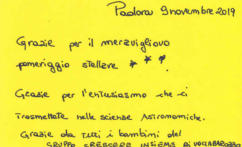 Padova 9 novembre 2019
Grazie per il meraviglioso
pomeriggio stellare
Grazie per l'entusiasmo che ci
trasmettete nelle scienze Astronomiche.
Grazie da tutti i bambini del
GRUPPO CRESCERE INSIEME DI